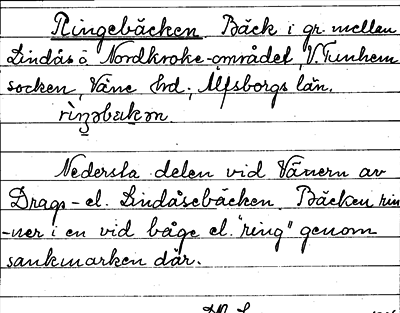 Ringebäcken Bäck i gr. mellan
Lindås o Nordkroke-området, V. Tunhem
socken, Väne hd; Älfsborgs län.
rìŋəbækən.
Nedersta delen vid Vänern av
Drags- el. Lindåsebäcken. Bäcken rin
-ner i en vid båge el. "ring" genom
sankmarken där.